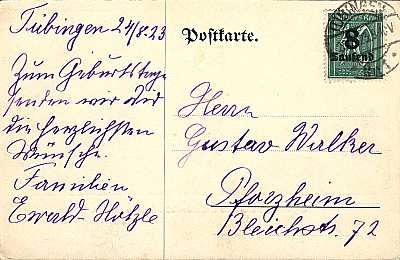 Tübingen 24/8.23
Zum Geburtstage
senden wir und
die herzlichsten
Wünsche.
Familien
Ewald-Hölzle
Postkarte.
TÜBINGEN
8
Tausend
Herrn
Gustav Walker
Pforzheim
Bleichstr. 72